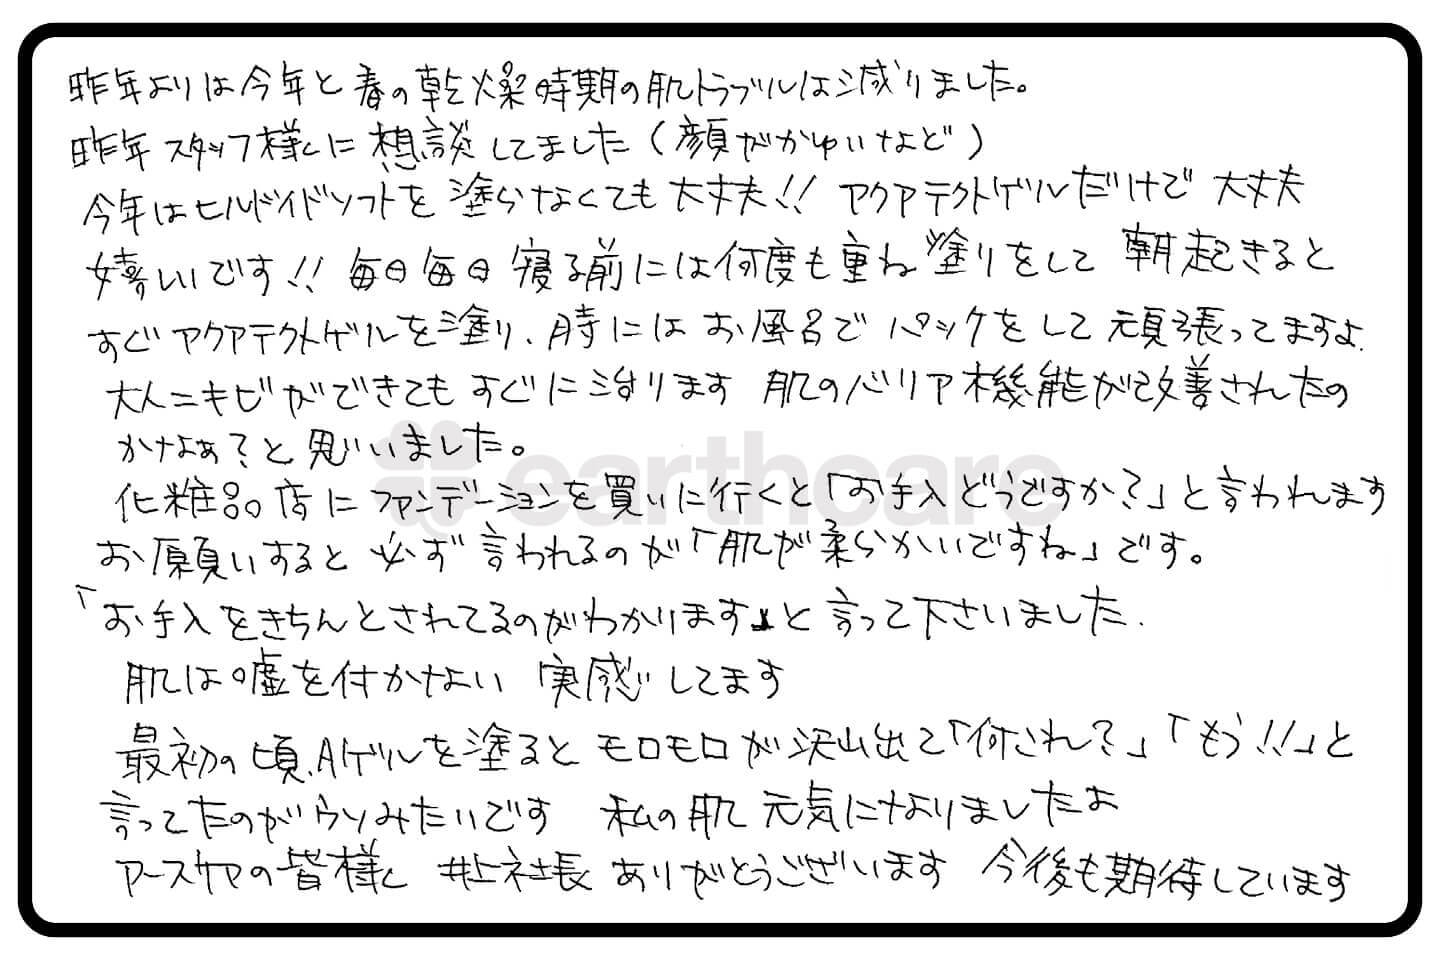 昨年よりは今年と春の乾燥時期の肌トラブルは減りました。
昨年スタッフ様に想談してました(顔がかゆいなど)
今年はヒルドイドソフトを塗らなくても大丈夫!! アクアテクトゲルだけで大丈夫
嬉しいです!! 毎日毎日 寝る前には何度も重ね塗りをして 朝起きると
すぐアクアテクトゲルを塗り、時にはお風呂でパックをして頑張ってますよ.
大人ニキビができてもすぐに治ります 肌のバリア機能が改善されたの
かなぁ?と思いました。
earthcare
化粧品店にファンデーションを買いに行くと「お手入どうですか?」と言われます
お願いすると必ず言われるのが「肌が柔らかいですね」です。
「お手入をきちんとされてるのがわかります」と言って下さいました.
肌は嘘を付かない 実感してます
最初の頃、Aゲルを塗るとモロモロが沢山出て「何これ?」「もう!!」と
言ってたのがウソみたいです 私の肌 元気になりましたよ
アースケアの皆様 井上社長 ありがとうございます 今後も期待しています